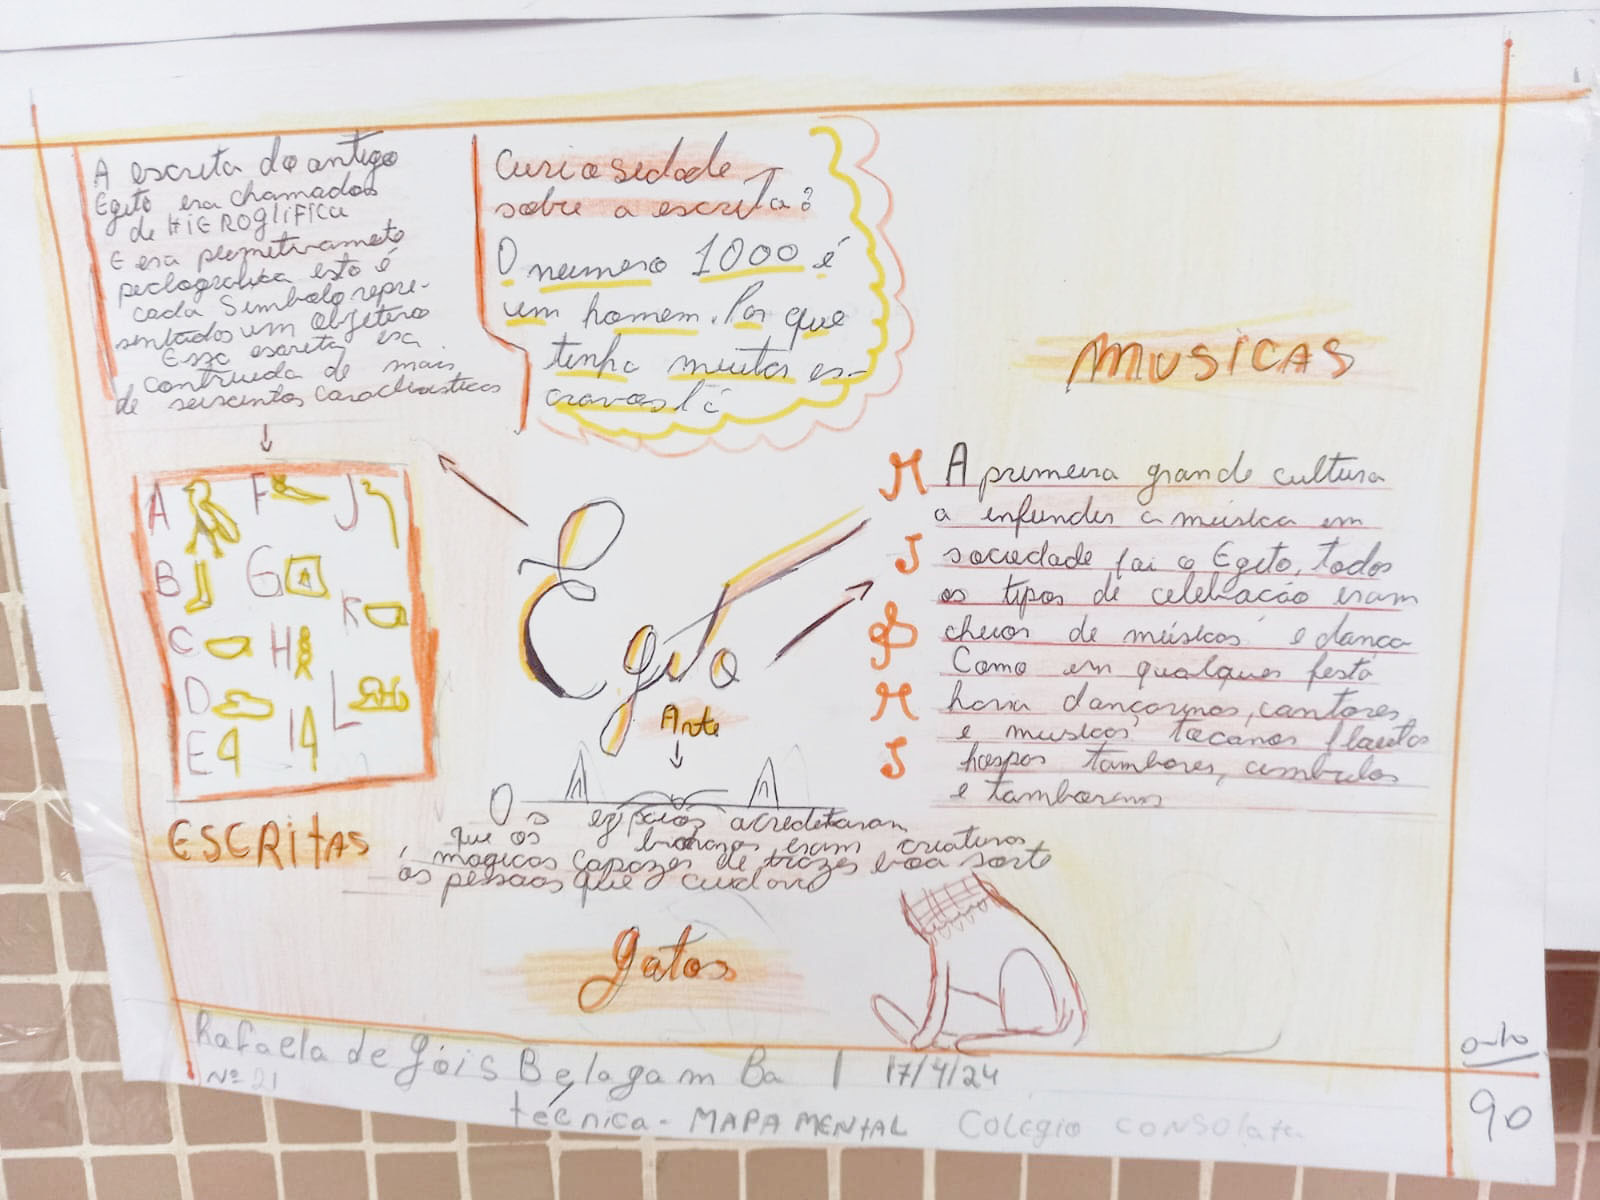 A escrita do antigo
Egito era chamados
de HIEROglIFICA
E era
pectografica esto é
cada Simbolo repre-
sentados um objetivo
Essa escreta era
contruida de mais
de seiscentos
Curiosidade
sobre a escrita?
O numero 1000 é
um homem. Por que
tenha muitos es-
cravos lá
MUSICAS
A primeira grande cultura
a enfundir a música em
sociedade foi o Egito, todos
os tipos de celebração eram
cheios de músicos e dança
Como em qualquer festa
havia dançarinos, cantores
e musicos tocanos flautas
haspas tambores, cimbulos
e tamborins
A F J
B G K
C H
D L
E I
Egito
Arte
Os egipcios acreditavam
que os eram criaturas
magicas capazes de trazer boa sorte
as pessoas que cuidava
ESCRITAS
gatos
Rafaela de góis Belagamba | 17/4/24
Nº 21
técnica - MAPA MENTAL Colégio consolata
90